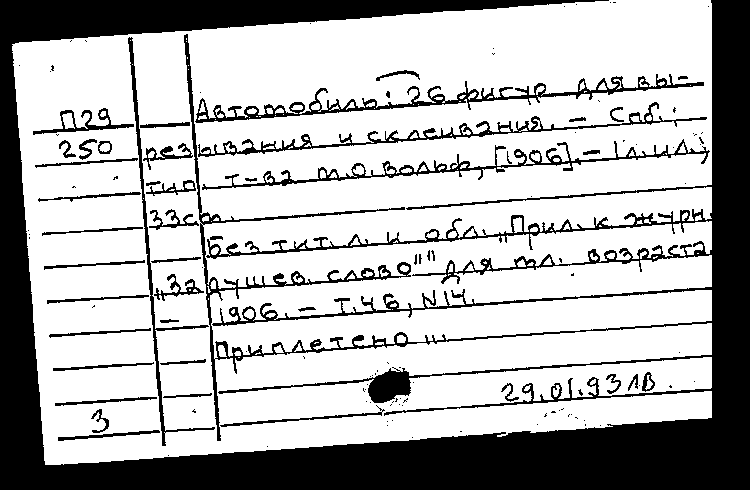 Автомобиль: 26 фигур для вы-
П29
250 резывания и склеивания. – Спб.:
тип. т-ва М.О. Вольф, [1906]. – 1 л. ил.;
33см.
Без тит. л. и обл. „Прил. к журн.
„Задушев. слово"" для мл. возраста.
– 1906. – Т.46, N14.
Приплетено ...
29.01.93 ЛВ.
3